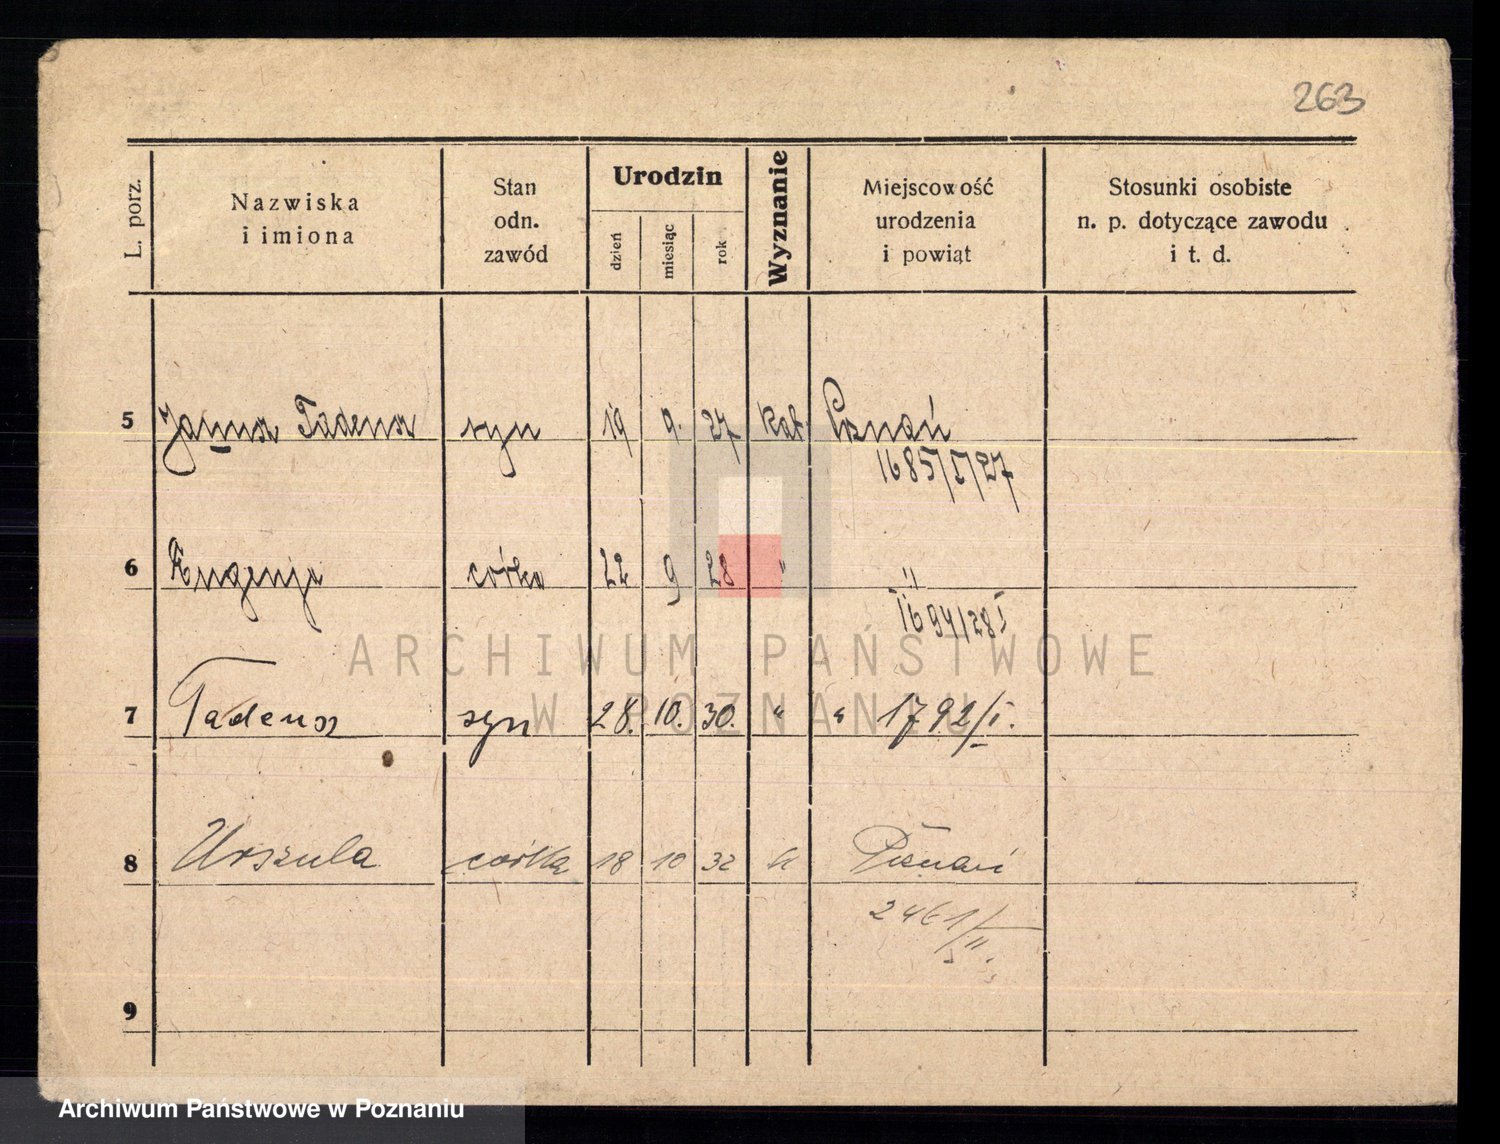 263
L. porz.
Nazwiska
i imiona
Stan
odn.
zawód
Urodzin
dzień
miesiąc
rok
Wyznanie
Miejscowość
urodzenia
i powiąt
Stosunki osobiste
n. p. dotyczące zawodu
i t. d.
5 Tadeusz syn 19 9. 27 kat. Poznań
1685/I/27
6 Eugenja córka 22 9 28 " "
1694/28 I
7 Tadeusz syn 28. 10. 30. " " 1792/I.
8 Urszula córka 18 10 32 k Poznań
2461/II.
9
ARCHIWUM PAŃSTWOWE
W POZNANIU
Archiwum Państwowe w Poznaniu